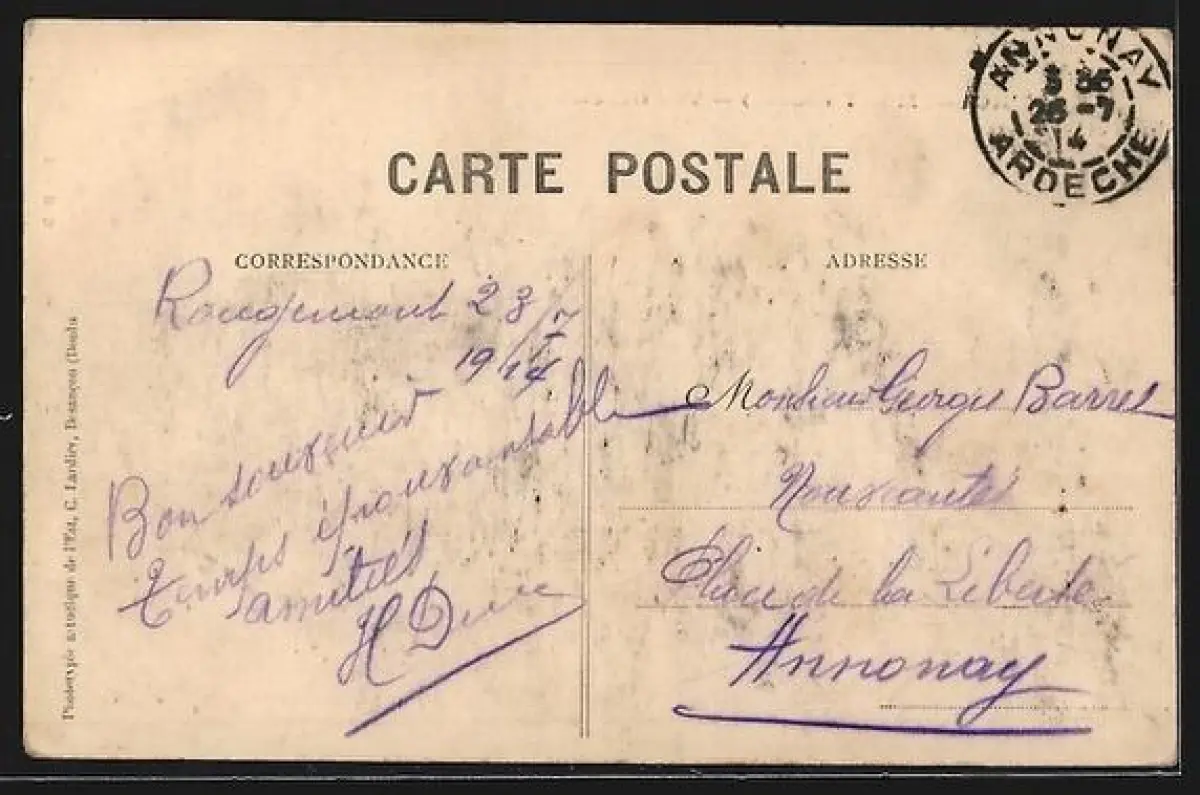 CARTE POSTALE
CORRESPONDANCE
ADRESSE
ANNONAY
26 -7
14
ARDECHE
Rougemont 23/7
1914
Bon souvenir
Temps épouvantable
amitiés
H
Monsieur Georges Barrel
Nouveautés
Place de la Liberté
Annonay
Phototypie artistique de l'Est, C. Lardier, Besançon (Doubs